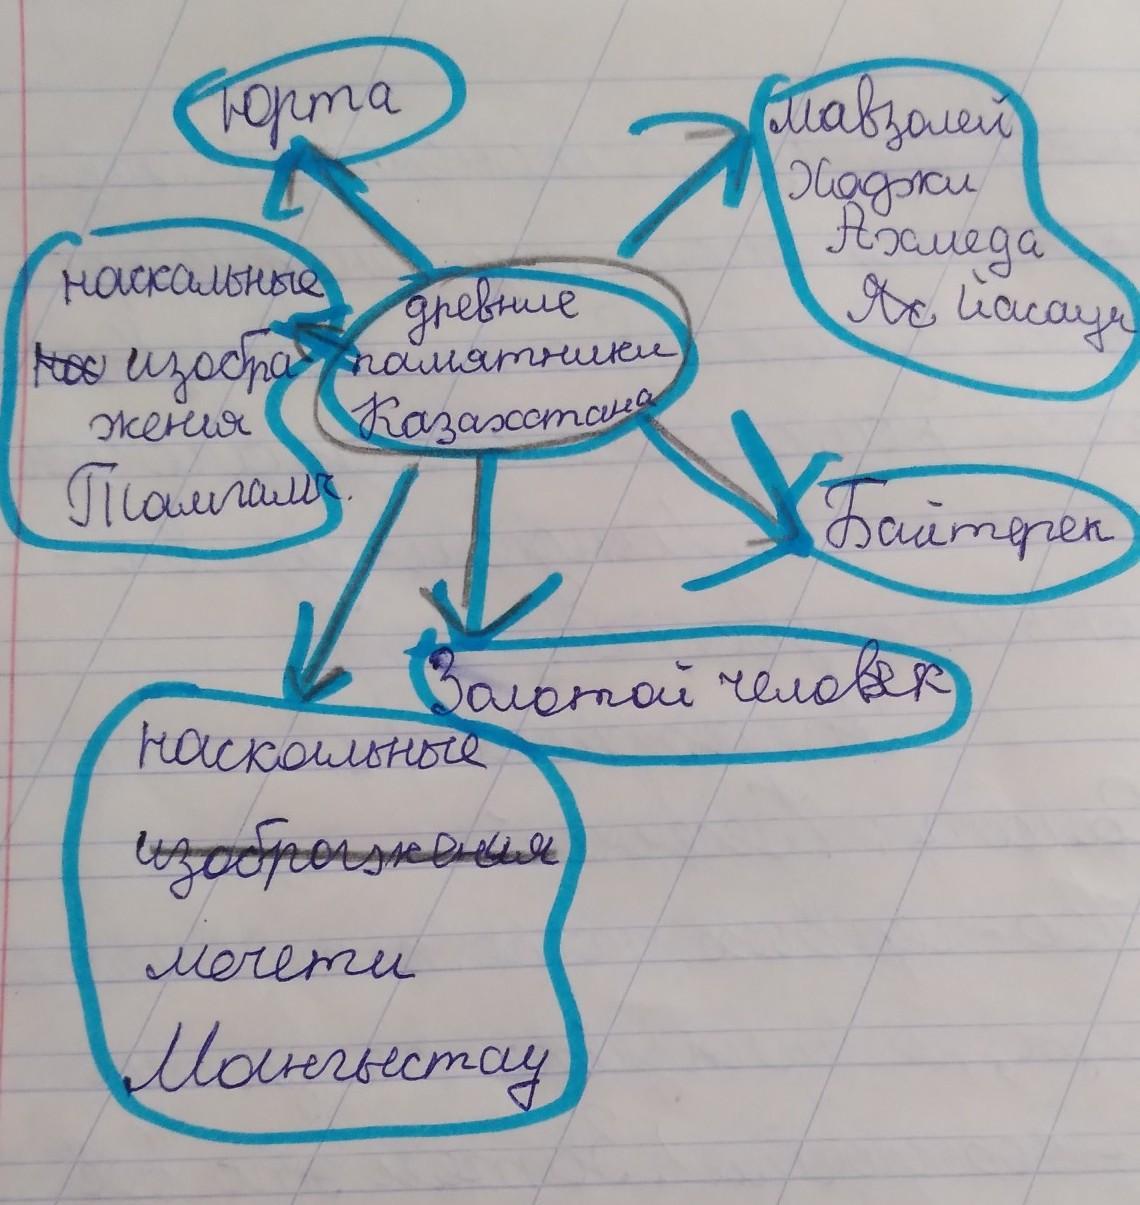 Юрта
Мавзолей
Хаджи
Ахмеда
Йасауи
наскальные
изобра
жения
Тамгалы.
древние
памятники
Казахстана
Байтерек
Золотой человек
наскальные
изображения
мечети
Мангыстау